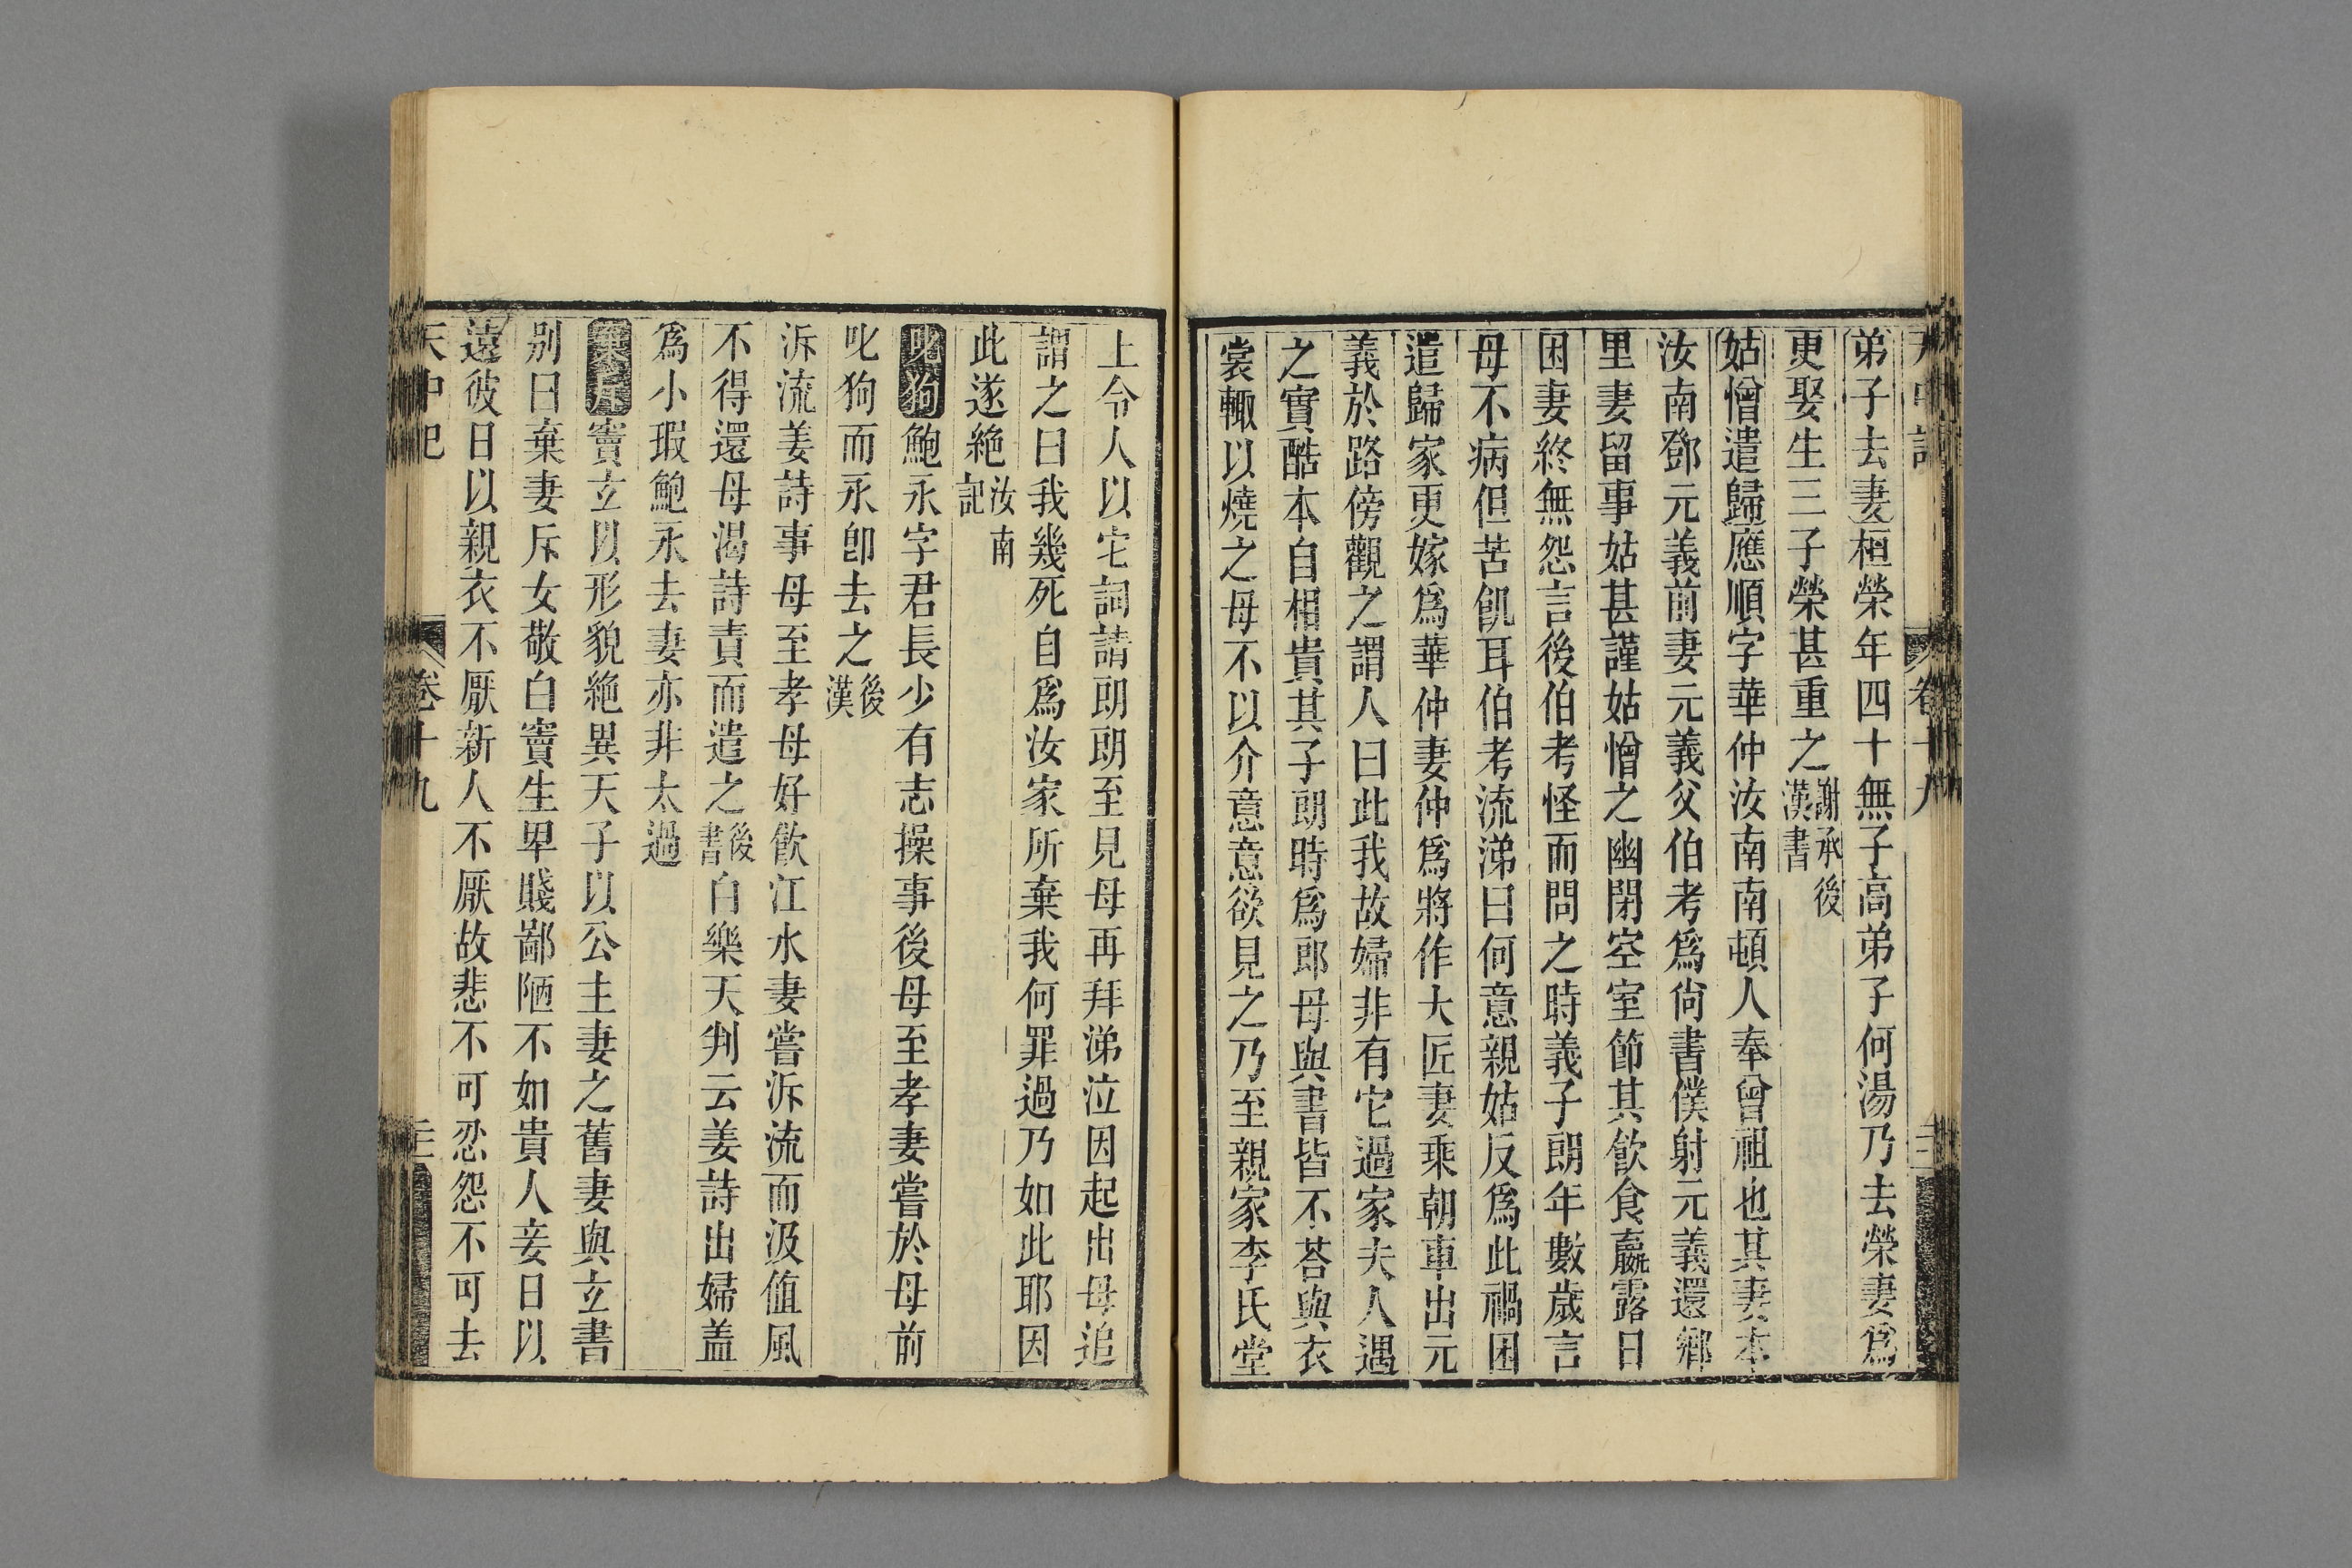 天中記 卷十九
弟子去妻桓榮年四十無子高弟子何湯乃去榮妻爲
更娶生三子榮甚重之謝承後漢書
姑憎遣歸應順字華仲汝南南頓人奉曾祖也其妻本
汝南鄧元義前妻元義父伯考爲尙書僕射元義還鄉
里妻留事姑甚謹姑憎之幽閉空室節其飮食羸露日
困妻終無怨言後伯考怪而問之時義子朗年數歲言
母不病但苦飢耳伯考流涕曰何意親姑反爲此禍因
遣歸家更嫁爲華仲妻仲爲將作大匠妻乘朝車出元
義於路傍觀之謂人曰此我故婦非有它過家夫人遇
之實酷本自相貴其子朗時爲郎母與書皆不荅與衣
裳輙以燒之母不以介意意欲見之乃至親家李氏堂
上令人以它詞請朗朗至見母再拜涕泣因起出母追
謂之曰我幾死自爲汝家所棄我何罪過乃如此耶因
此遂絶汝南記
叱狗鮑永字君長少有志操事後母至孝妻嘗於母前
叱狗而永卽去之後漢
泝流姜詩事母至孝母好飮江水妻嘗泝流而汲値風
不得還母渴詩責而遣之後書白樂天判云姜詩出婦盖
爲小瑕鮑永去妻亦非太過
棄斥竇玄以形貌絶異天子以公主妻之舊妻與玄書
别曰棄妻斥女敬白竇生卑賤鄙陋不如貴人妾日以
遠彼日以親衣不厭新人不厭故悲不可忍怨不可去
天中記 卷十九